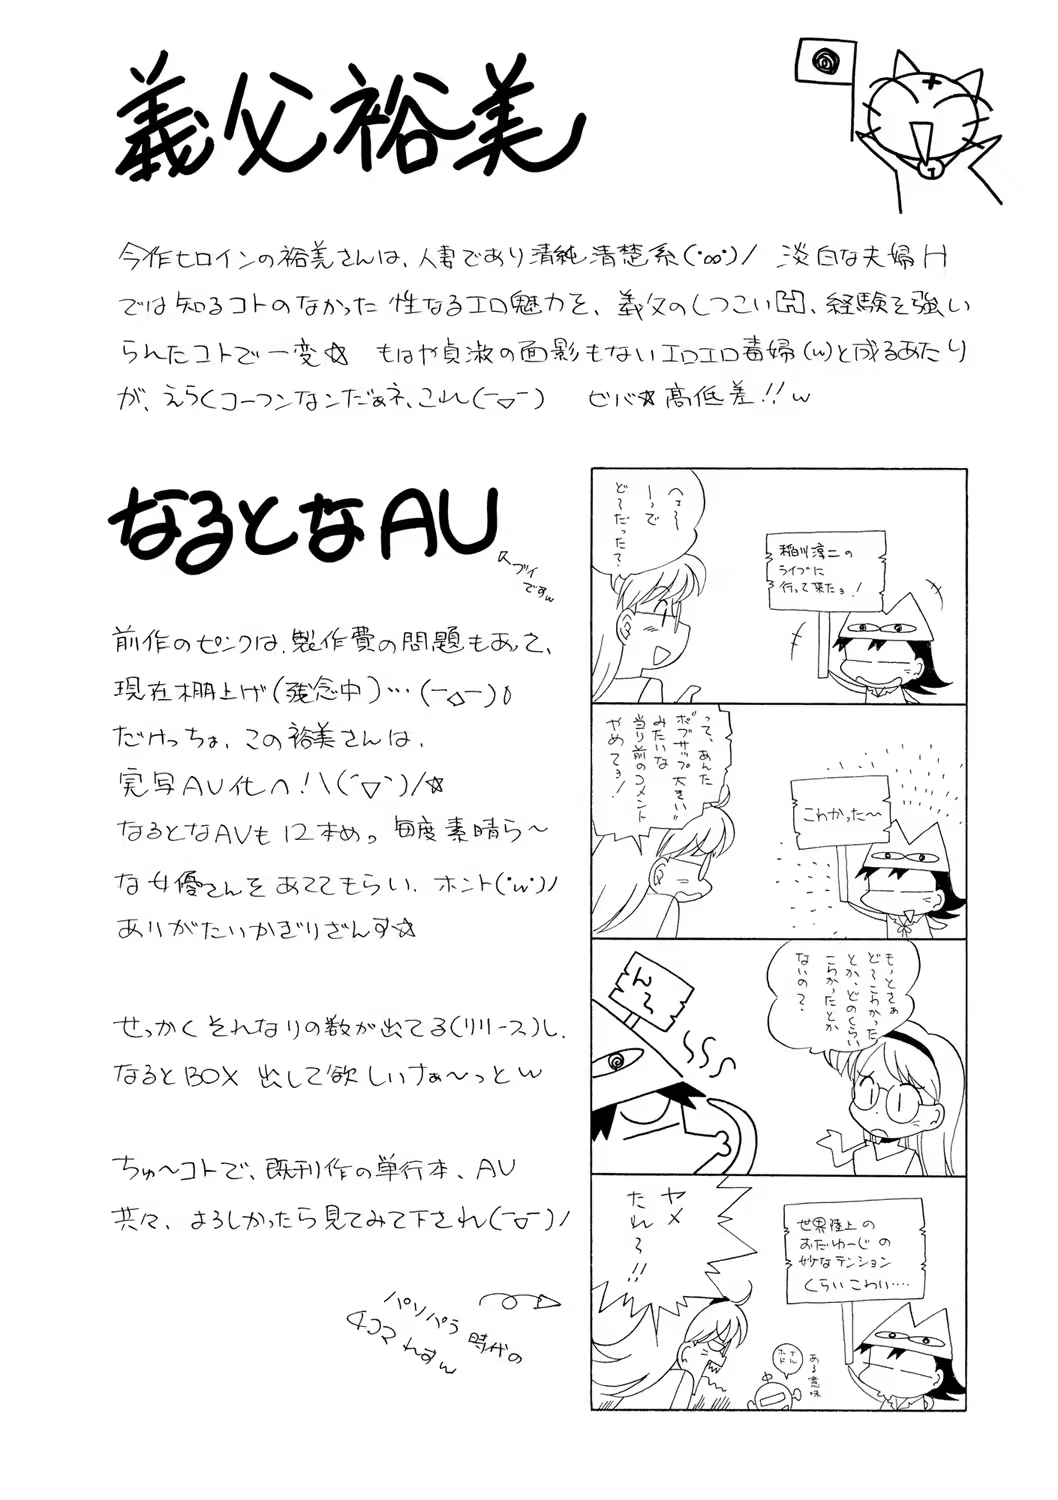 義父裕美
今作ヒロインの裕美さんは、人妻であり清純清楚系(･∞･)/ 淡白な夫婦H
では知るコトのなかった 性なるエロ魅力を、義父のしつこい関、経験を強い
られたコトで一変☆ もはや貞淑の面影もないエロエロ毒婦(w)と成るあたり
が、えらくコーフンなンだぁネ、これ(ー▽ー) ビバ☆高低差!!w
なるとなAV
↖ブイ
ですw
前作のピンクは、製作費の問題もあって、
現在棚上げ(残念中)…(ー△ー)
だけっちょ、この裕美さんは、
実写AV化へ!\(▽)/☆
なるとなAVも12本めっ 毎度素晴ら〜
な女優さんをあててもらい、ホント('w')/
ありがたいかぎりざんす☆
せっかくそれなりの数が出てる(リリース)し、
なるとBOX 出して欲しいナぁ〜っとw
ちゅ〜コトで、既刊作の単行本、AV
共々、よろしかったら見てみて下され(ー▽ー)/
パソパラ時代の
4コマれすw
稲川淳二の
ライブに
行って来たョ!
へェ〜
ーっで
ど〜だった?
こわかった〜
って、あんた
ボブサップ大きい
みたいな
当り前のコメント
やめてョ!
も〜とさぁ
ど〜こわかった
とか、どのくらい
こわかったとか
ないの?
ん〜
世界陸上の
おだゆーじの
妙なテンション
くらいこわい‥‥
ヤメ
たれ〜!!
ある意味
さんホド